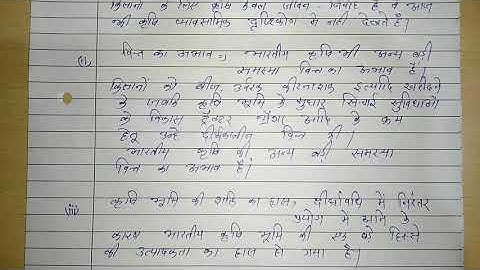 किसानों के लिए कृषि केवल जीवन-निर्वाह है वे आज
भी कृषि व्यावसायिक दृष्टिकोण से नहीं देखते हैं।
(ii) वित्त का अभाव:- भारतीय कृषि की अन्य बड़ी
समस्या वित्त का अभाव है।
किसानों को बीज, उर्वरक कीटनाशक इत्यादि खरीदने
के जबकि कृषि भूमि के सुधार सिंचाई सुविधाओं
के विकास ट्रैक्टर आदि के क्रय
हेतु उन्हें दीर्घकालीन वित्त की।
भारतीय कृषि की अन्य बड़ी समस्या
वित्त का अभाव है।
(iii) कृषि भूमि की शक्ति का ह्रास, दीर्घावधि में निरंतर
प्रयोग में आने के
कारण भारतीय कृषि भूमि की एक बड़े हिस्से
की उत्पादकता का ह्रास हो गया है।